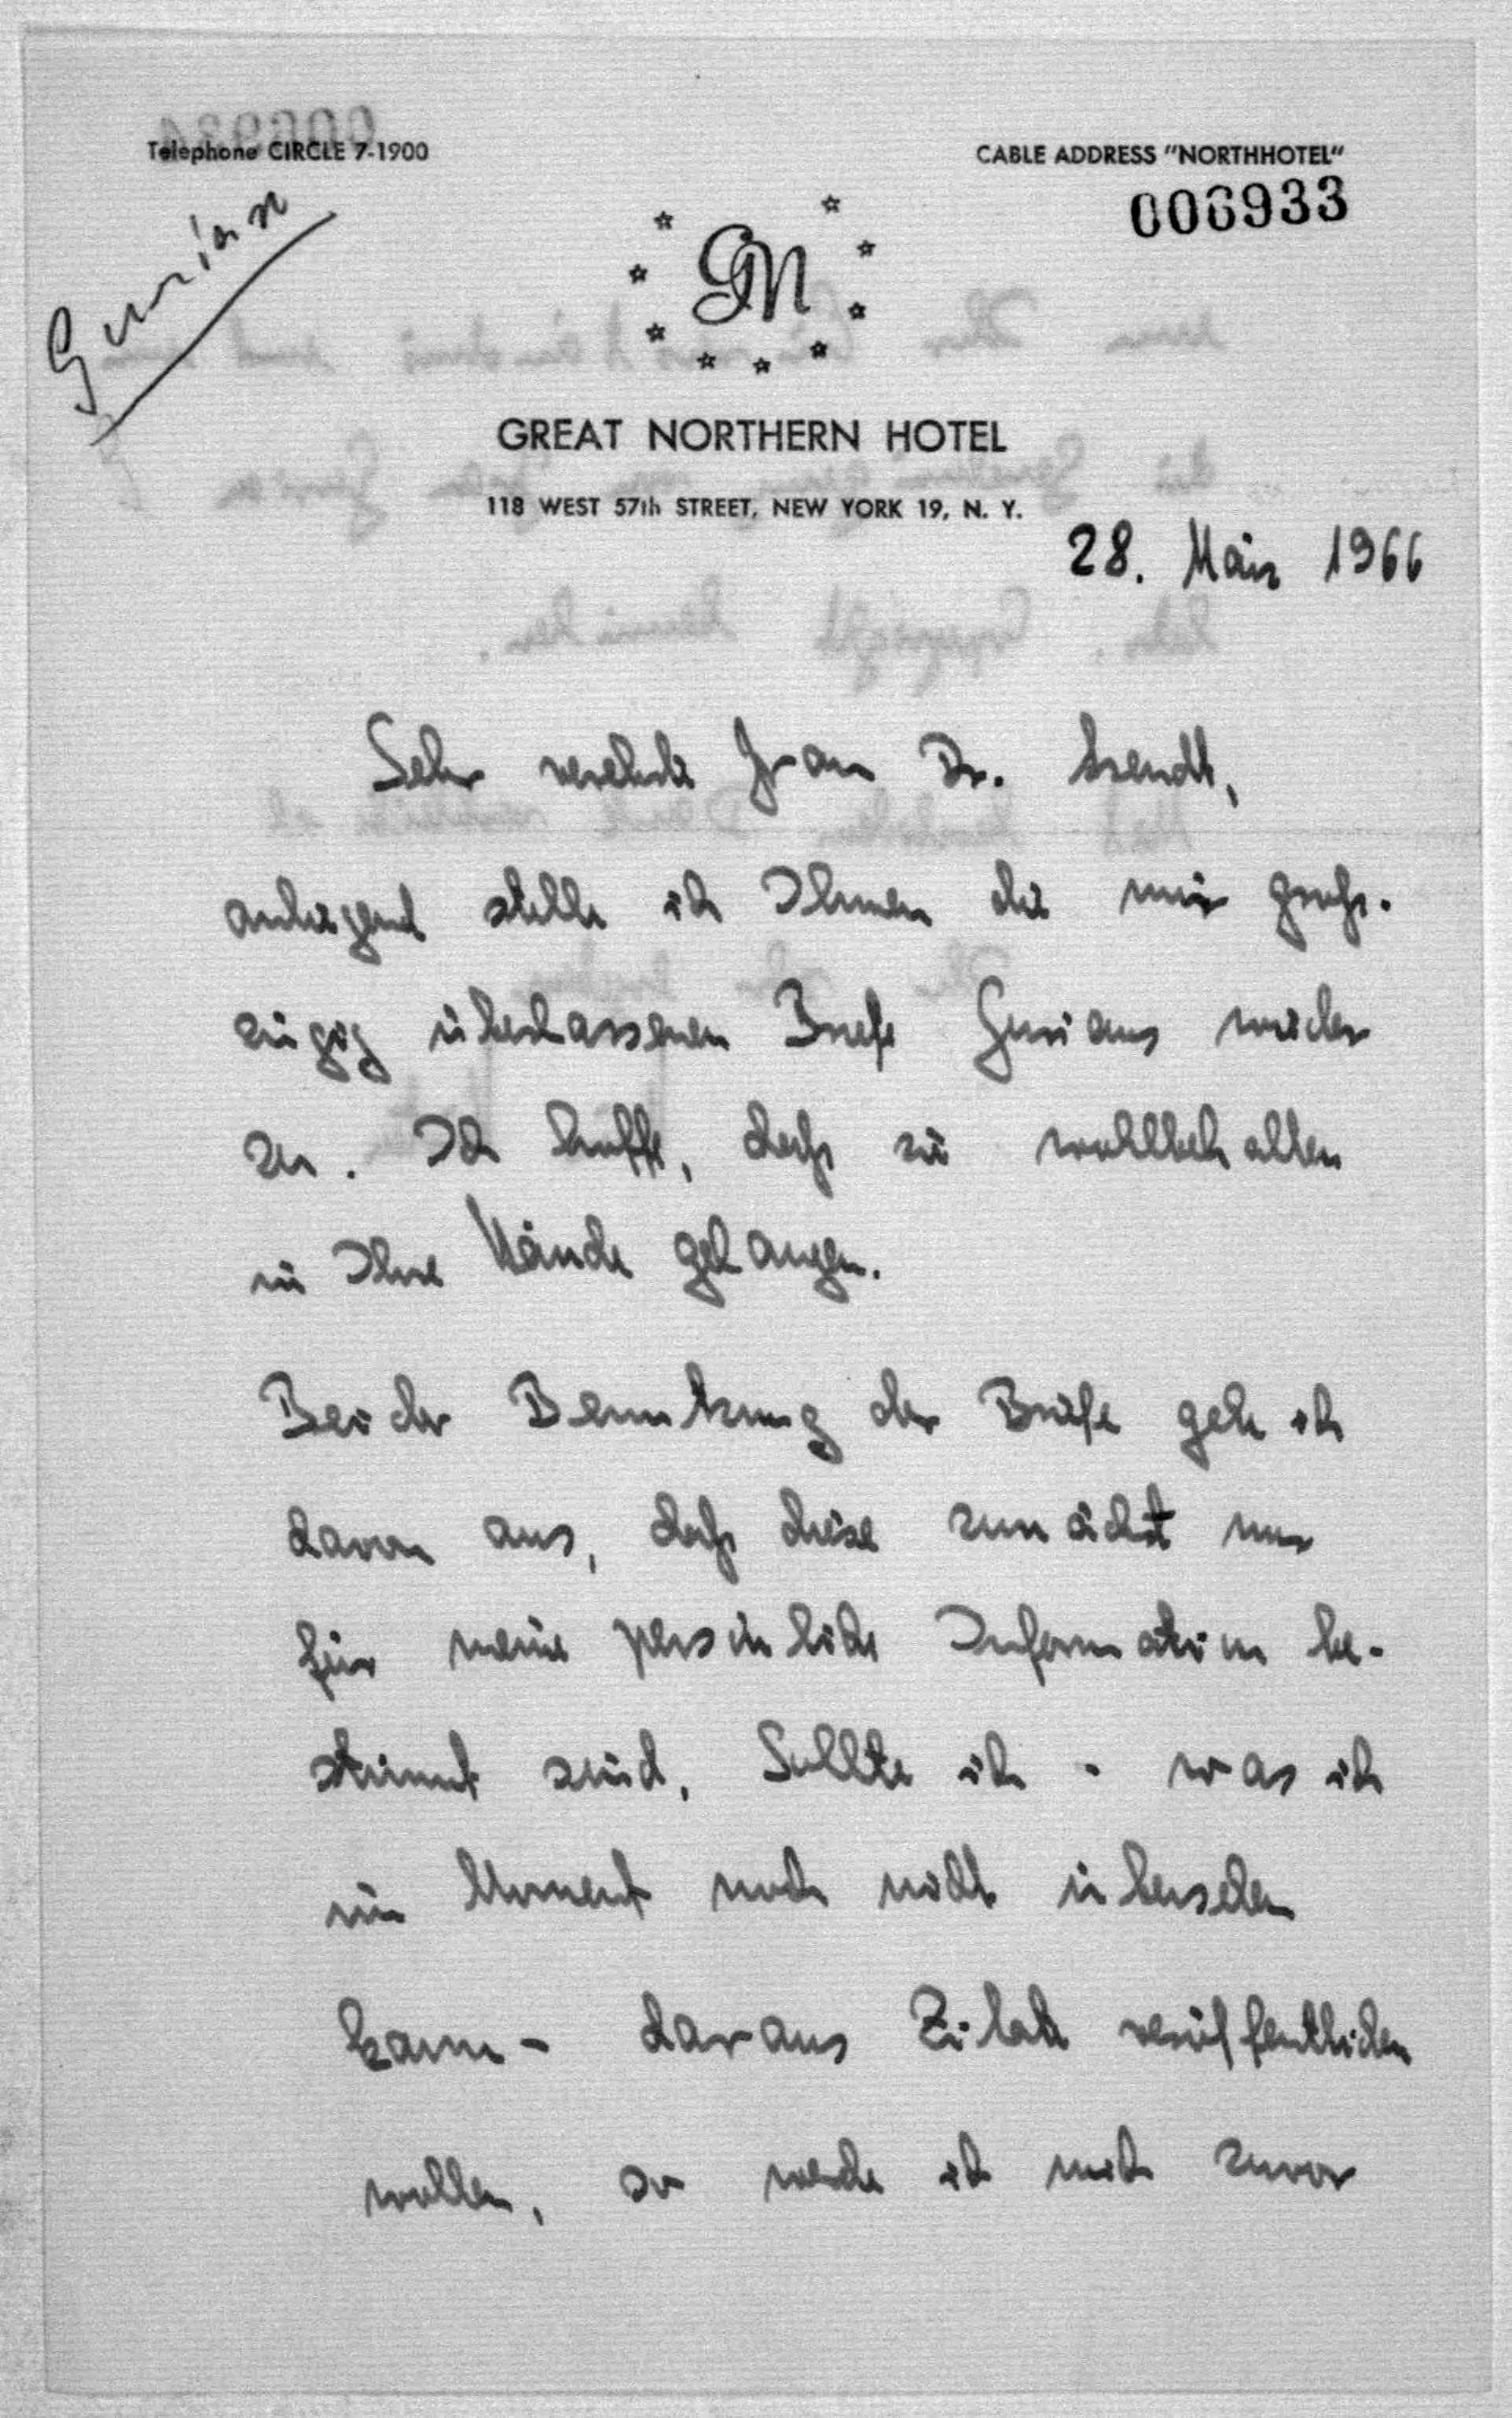 Telephone CIRCLE 7-1900
CABLE ADDRESS "NORTHHOTEL"
006933
Gurian
GN
GREAT NORTHERN HOTEL
118 WEST 57th STREET, NEW YORK 19, N. Y.
28. März 1966
Sehr verehrte Frau Dr. Arendt,
anliegend stelle ich Ihnen die mir groß-
zügig überlassenen Briefe Gurians wieder
zu. Ich hoffe, daß sie wohlbehalten
in Ihre Hände gelangen.
Bei der Benutzung der Briefe gehe ich
davon aus, daß diese zunächst nur
für meine persönliche Information be-
stimmt sind. Sollte ich - was ich
im Moment noch nicht übersehen
kann - daraus Zitate veröffentlichen
wollen, so werde ich mich zuvor